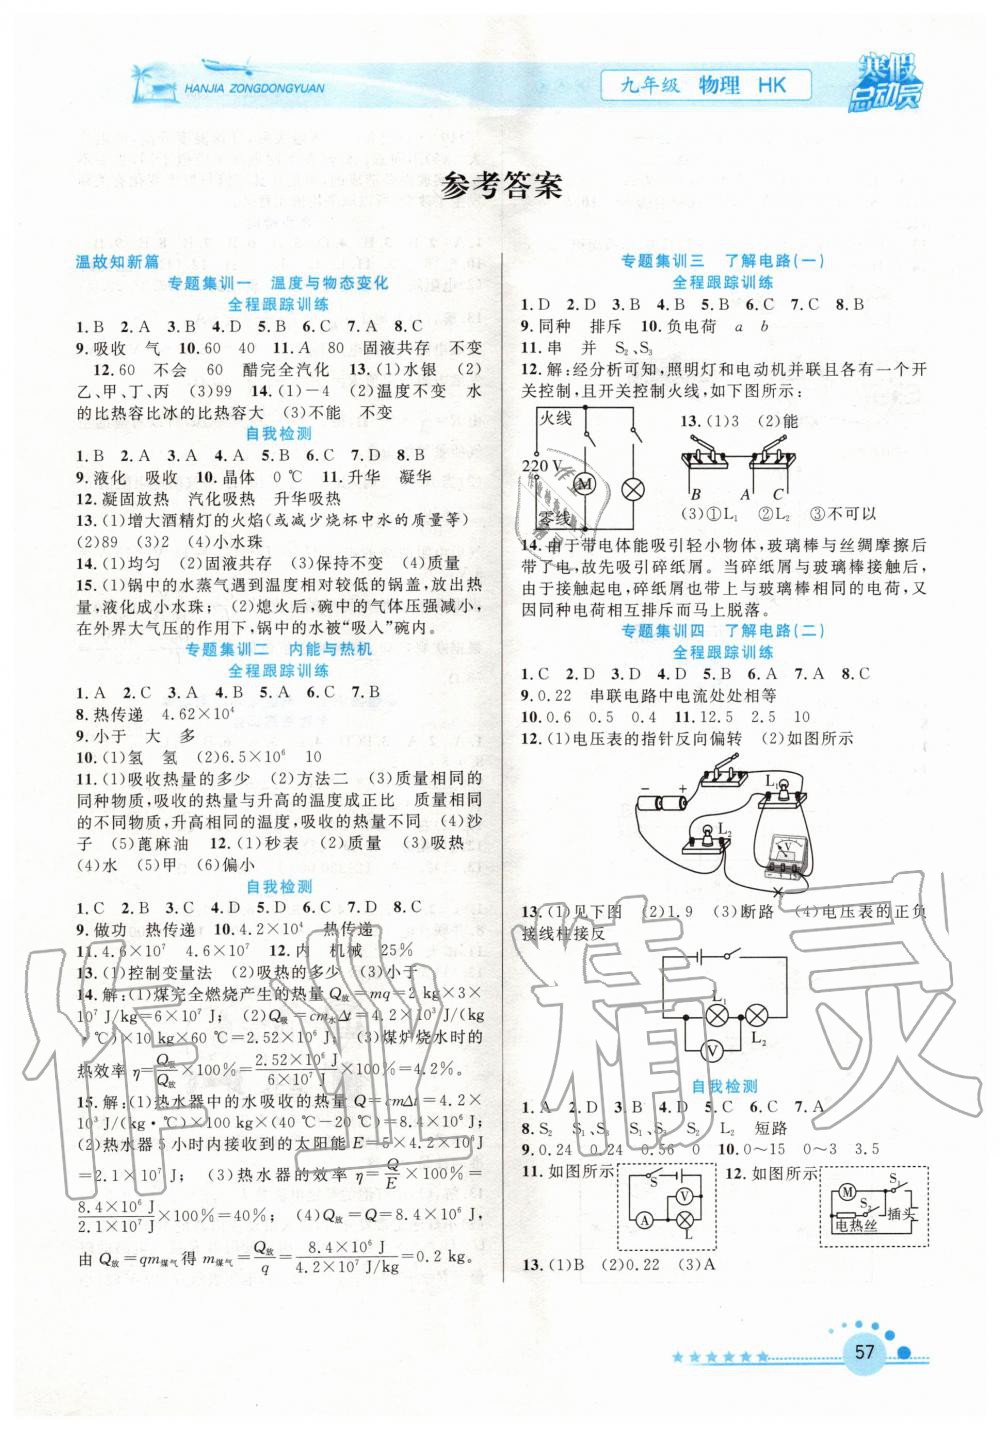 HANJIA ZONGDONGYUAN
九年级 物理 HK
寒假
总动员
参考答案
温故知新篇
专题集训一 温度与物态变化
全程跟踪训练
1.B 2.A 3.B 4.D 5.B 6.C 7.A 8.C
9.吸收 气 10.60 40 11.A 80 固液共存 不变
12.60 不会 60 醋完全汽化 13.(1)水银 (2)
乙、甲、丁、丙 (3)99 14.(1)-4 (2)温度不变 水
的比热容比冰的比热容大 (3)不能 不变
自我检测
1.B 2.B 3.A 4.A 5.A 6.C 7.D 8.B
9.液化 吸收 10.晶体 0 ℃ 11.升华 凝华
12.凝固放热 汽化吸热 升华吸热
13.(1)增大酒精灯的火焰(或减少烧杯中水的质量等)
(2)89 (3)2 (4)小水珠
14.(1)均匀 (2)固液共存 (3)保持不变 (3)固
15.(1)锅中的水蒸气遇到温度相对较低的锅盖,放出热
量,液化成小水珠; (2)熄火后,碗中的气体压强减小,
在外界大气压的作用下,锅中的水被“吸入”碗内。
专题集训二 内能与热机
全程跟踪训练
1.A 2.C 3.A 4.B 5.A 6.C 7.B
8.热传递 4.62×10⁴
9.小于 大 多
10.(1)氢 氢 (2)6.5×10⁶ 10
11.(1)吸收热量的多少 (2)方法二 (3)质量相同的
同种物质,吸收的热量与升高的温度成正比 质量相同
的不同物质,升高相同的温度,吸收的热量不同 (4)沙
子 (5)蓖麻油 12.(1)秒表 (2)质量 (3)吸热
(4)水 (5)甲 (6)偏小
自我检测
1.C 2.B 3.C 4.D 5.D 6.D 7.D 8.C
9.做功 热传递 10.4.2×10⁴ 热传递
11.4.6×10⁷ 4.6×10⁷ 12.内 机械 25%
13.(1)控制变量法 (2)吸热的多少 (3)小于
14.解:(1)煤完全燃烧产生的热量 Q放=mq=2 kg×3×
10⁷ J/kg=6×10⁷ J; (2)Q吸=cm水Δt=4.2×10³ J/(kg
·℃)×10 kg×60 ℃=2.52×10⁶ J; (3)煤炉烧水时的
热效率 η=Q吸/Q放×100%=2.52×10⁶ J/6×10⁷ J×100%=4.2%。
15.解:(1)热水器中的水吸收的热量 Q=cmΔt=4.2×
10³ J/(kg·℃)×100 kg×(40 ℃-20 ℃)=8.4×10⁶ J;
(2)热水器 5 小时内接收到的太阳能 E=5×4.2×10⁶ J
=2.1×10⁷ J; (3)热水器的效率 η=Q/E×100%=
8.4×10⁶ J/2.1×10⁷ J×100%=40%; (4)Q放=Q=8.4×10⁶ J,
由 Q放=qm煤气得 m煤气=Q放/q=8.4×10⁶ J/4.2×10⁷ J/kg=0.2 kg。
专题集训三 了解电路(一)
全程跟踪训练
1.D 2.D 3.B 4.B 5.C 6.C 7.C 8.B
9.同种 排斥 10.负电荷 a b
11.串 并 S₂、S₃
12.解:经分析可知,照明灯和电动机并联且各有一个开
关控制,且开关控制火线,如下图所示:
火线
220 V
M
零线
13.(1)3 (2)能
B A C
(3)①L₁ ②L₂ ③不可以
14.由于带电体能吸引轻小物体,玻璃棒与丝绸摩擦后
带了电,故先吸引碎纸屑。当碎纸屑与玻璃棒接触后,
由于接触起电,碎纸屑也带上与玻璃棒相同的电荷,又
因同种电荷相互排斥而马上脱落。
专题集训四 了解电路(二)
全程跟踪训练
1.C 2.D 3.C 4.C 5.A 6.B 7.A 8.A
9.0.22 串联电路中电流处处相等
10.0.6 0.5 0.4 11.12.5 2.5 10
12.(1)电压表的指针反向偏转 (2)如图所示
− +
L₁
L₂
V
13.(1)见下图 (2)1.9 (3)断路 (4)电压表的正负
接线柱接反
L₁
V
L₂
自我检测
1.A 2.D 3.A 4.D 5.C 6.C 7.A
8.S₂ S₁、S₃ S₂ L₂ 短路
9.0.24 0.24 0.56 0 10.0～15 0～3 3.5
11.如图所示
S
V
A
L
12.如图所示
M
S₁
S₂
插头
电热丝
13.(1)B (2)0.22 (3)A
57
作业精灵